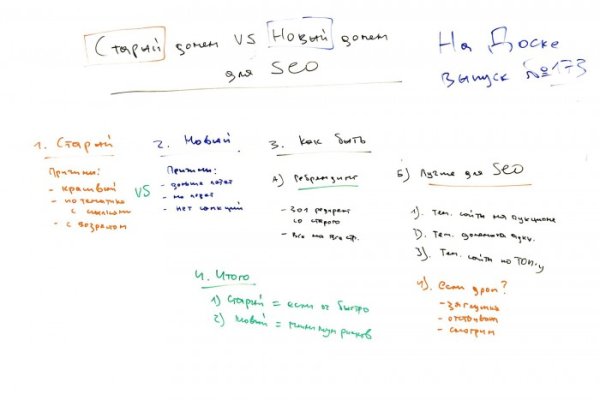 Старый домен VS Новый домен
для SEO
На Доске
выпуск №173
1. Старый
Причины:
- красивый
- по тематике
с ссылками
- с возрастом
VS
2. Новый
Причины:
- дольше
- нет санкций
3. Как быть
А) Ребрендинг
- 301 редирект
со старого
- Все на все стр.
Б) Лучше для SEO
1). Тем. сайты на аукционе
2). Тем. домена аукц.
3). Тем. сайты по ТОП-у
4). Если дроп?
- заглушка
- отстаивать
- смотрим
4. Итого
1) Старый = если быстро
2) Новый = минимум рисков